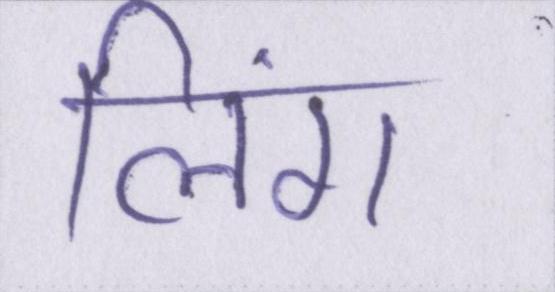 लिंग